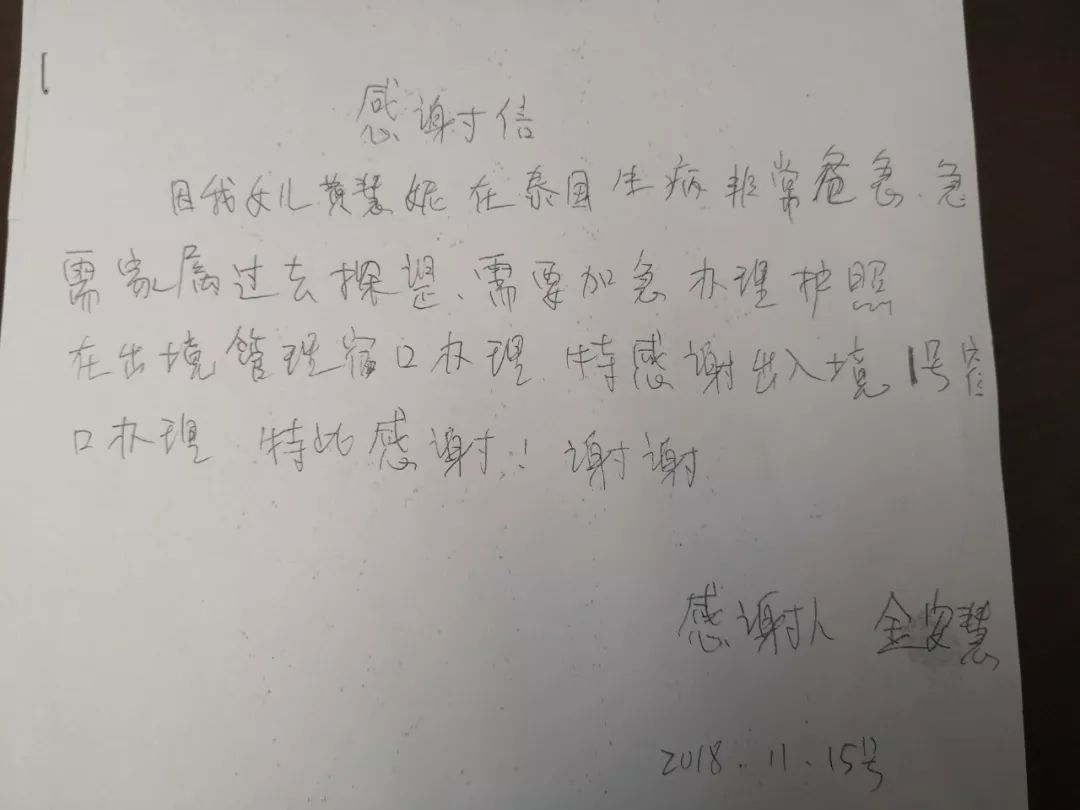 感谢信
因我女儿黄慧妮在泰国生病非常危急.急
需家属过去探望、需要加急办理护照
在出境管理窗口办理.特感谢出入境1号窗
口办理 特此感谢.！谢谢
感谢人 金安慧
2018.11.15号